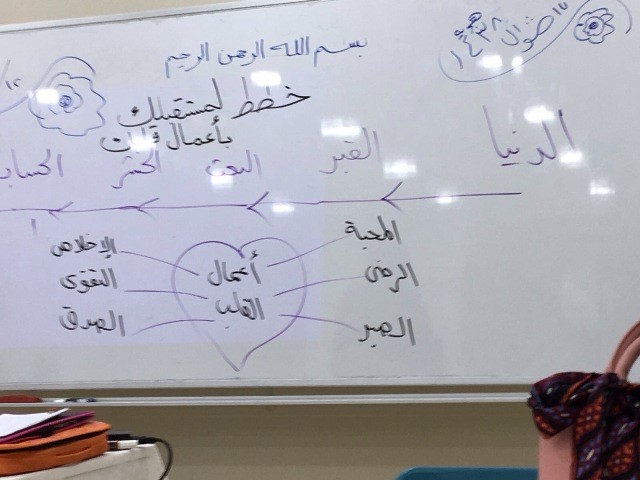 ١٢ شوال ١٤٣٨ هـ
بسم الله الرحمن الرحيم
خطط لمستقبلك
بأعمال قلبك
الدنيا القبر البعث الحشر الحساب
أعمال القلب
المحبة
الرضى
الصبر
الإخلاص
التقوى
الصدق